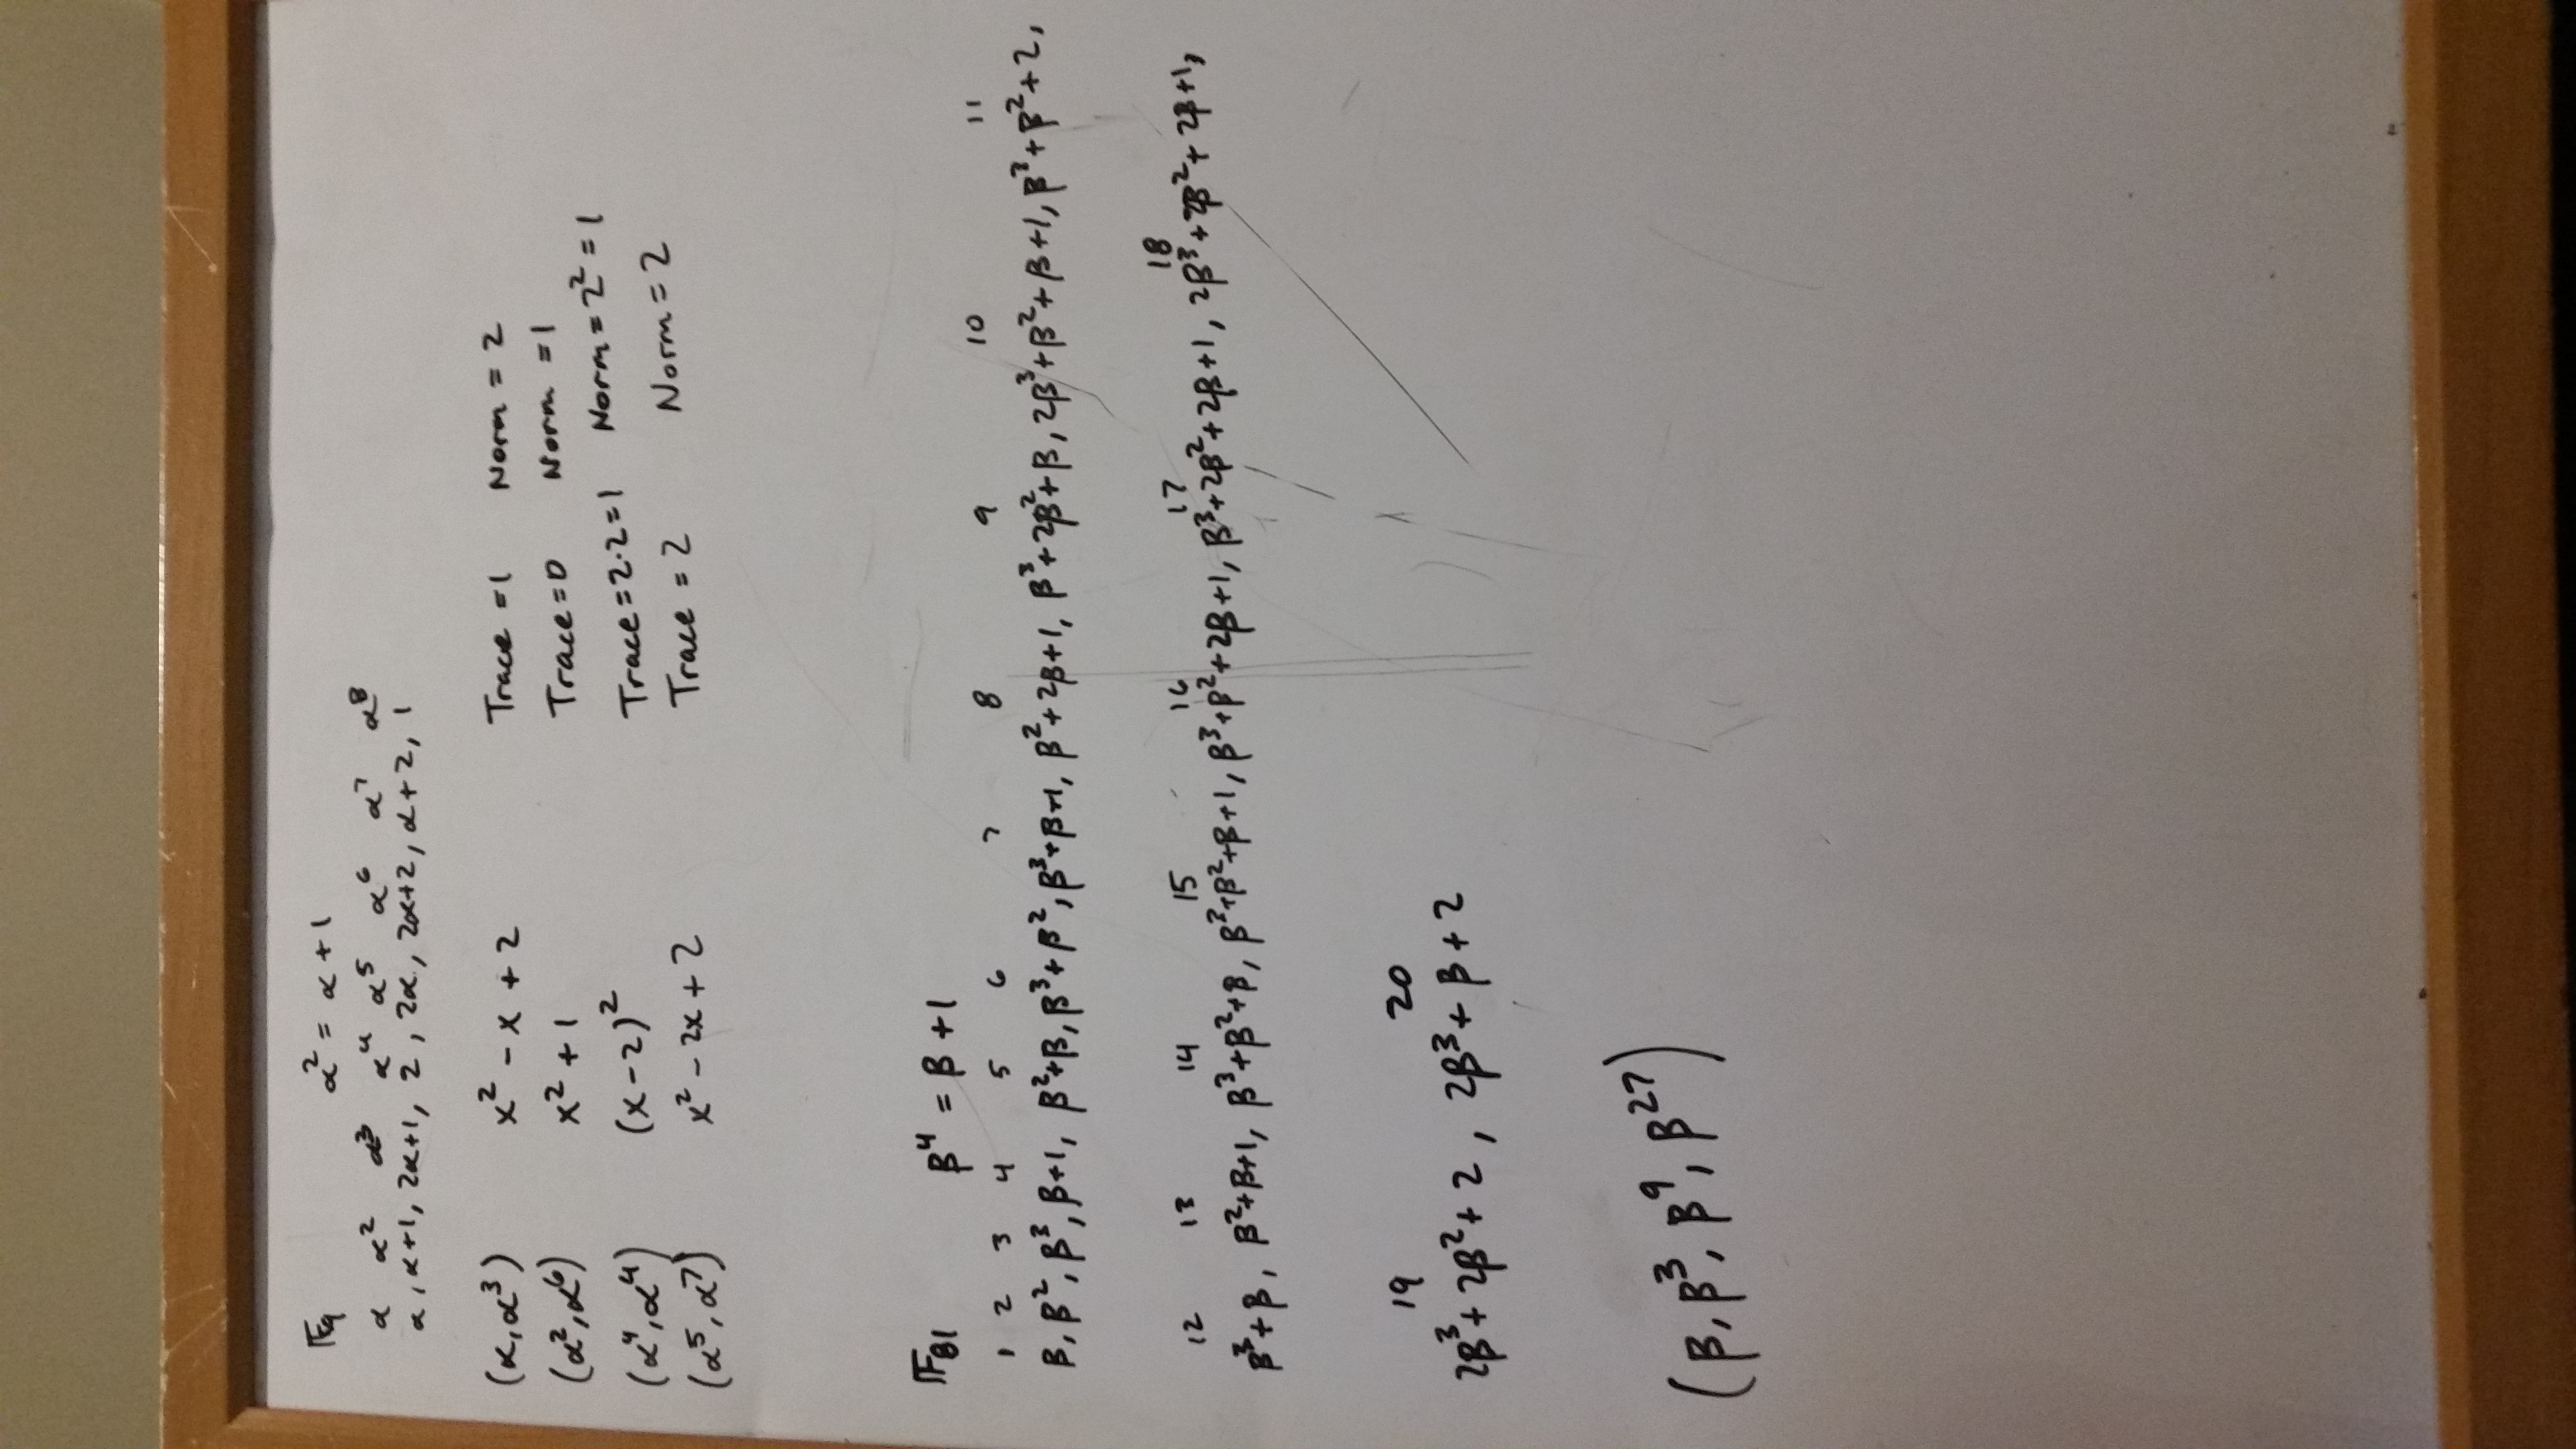 𝔽₉ α² = α + 1
α α² α³ α⁴ α⁵ α⁶ α⁷ α⁸
α, α+1, 2α+1, 2, 2α, 2α+2, α+2, 1
(α, α³) x² - x + 2 Trace = 1 Norm = 2
(α², α⁶) x² + 1 Trace = 0 Norm = 1
(α⁴, α⁴) (x-2)² Trace = 2·2 = 1 Norm = 2² = 1
(α⁵, α⁷) x² - 2x + 2 Trace = 2 Norm = 2
𝔽₈₁ β⁴ = β + 1
1 2 3 4 5 6 7 8 9 10 11
β, β², β³, β+1, β²+β, β³+β², β³+β+1, β²+2β+1, β³+2β²+β, 2β³+β²+β+1, β³+β²+2,
12 13 14 15 16 17 18
β³+β, β²+β+1, β³+β²+β, β³+β²+β+1, β³+β²+2β+1, β³+2β²+2β+1, 2β³+2β²+2β+1,
19 20
2β³+2β²+2, 2β³+β+2
(β, β³, β⁹, β²⁷)